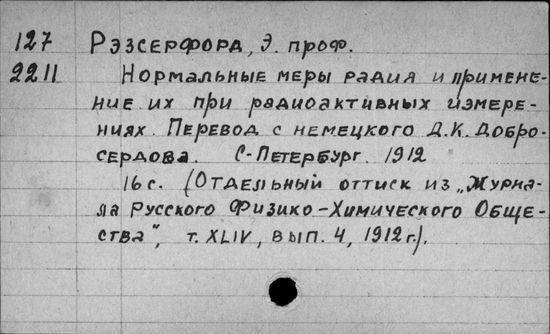 127 Рэзсерфорд, Э. проф.
2211 Нормальные меры радия и примене-
ние их при радиоактивных измере-
ниях. Перевод с немецкого Д.К. Добро-
сердова. С-Петербург. 1912
16 с. (Отдельный оттиск из „Журна-
ла Русского Физико-Химического Обще-
ства", т. XLIV, вып. 4, 1912 г.).